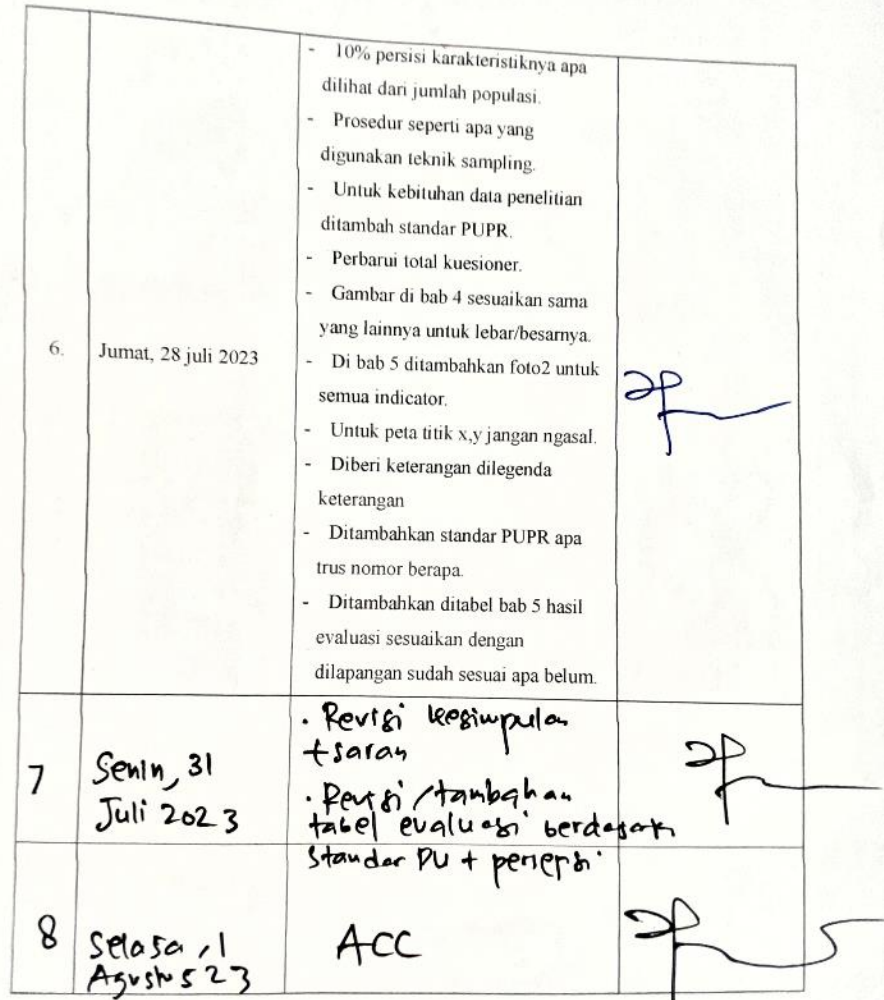 - 10% persisi karakteristiknya apa
dilihat dari jumlah populasi.
- Prosedur seperti apa yang
digunakan teknik sampling.
- Untuk kebituhan data penelitian
ditambah standar PUPR.
- Perbarui total kuesioner.
- Gambar di bab 4 sesuaikan sama
yang lainnya untuk lebar/besarnya.
6. Jumat, 28 juli 2023
- Di bab 5 ditambahkan foto2 untuk
semua indicator.
- Untuk peta titik x,y jangan ngasal.
- Diberi keterangan dilegenda
keterangan
- Ditambahkan standar PUPR apa
trus nomor berapa.
- Ditambahkan ditabel bab 5 hasil
evaluasi sesuaikan dengan
dilapangan sudah sesuai apa belum.
7 Senin, 31
Juli 2023
. Revisi kesimpulan
+ saran
. Revisi / tambahan
tabel evaluasi berdasark
Standar PU + persepsi
8 Selasa, 1
Agustus 23
ACC